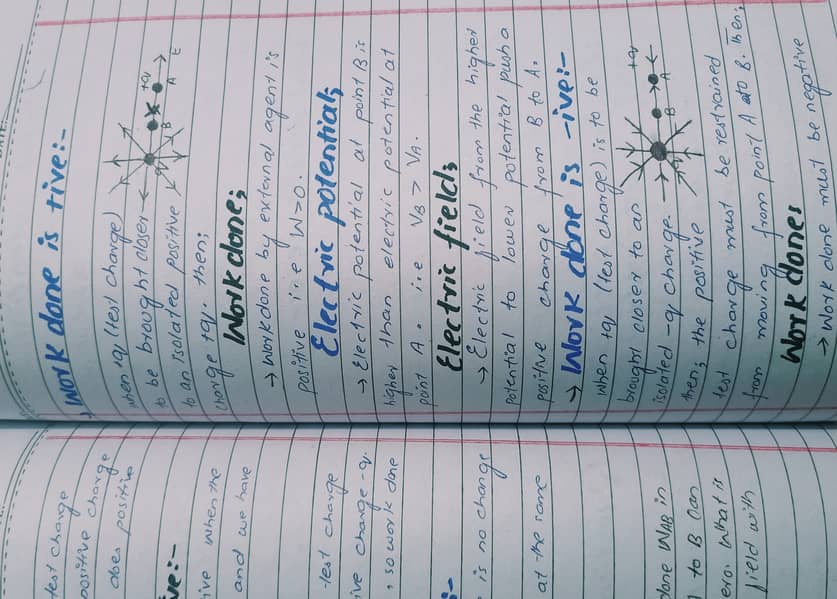 → Work done is +ive:-
when +q (test charge)
to be brought closer
to an isolated positive
charge +q. then;
B
A
E
+q
Work done;
→ Work done by external agent is
positive i.e W>0.
Electric potential;
→ Electric potential at point B is
higher than electric potential at
point A. i.e VB > VA.
Electric field;
→ Electric field from the higher
potential to lower potential push a
positive charge from B to A.
→ Work done is -ive:-
when +q (test charge) is to be
brought closer to an
isolated -q charge.
B
A
+q
then; the positive
test charge must be restrained
from moving from point A to B. Then;
Work done;
→ Work done must be negative
test charge
positive charge
does positive
ve:-
ive when the
and we have
test charge
ive charge -q.
, so work done
:-
is no change
at the same
done WAB in
to B can
ero. What is
field with